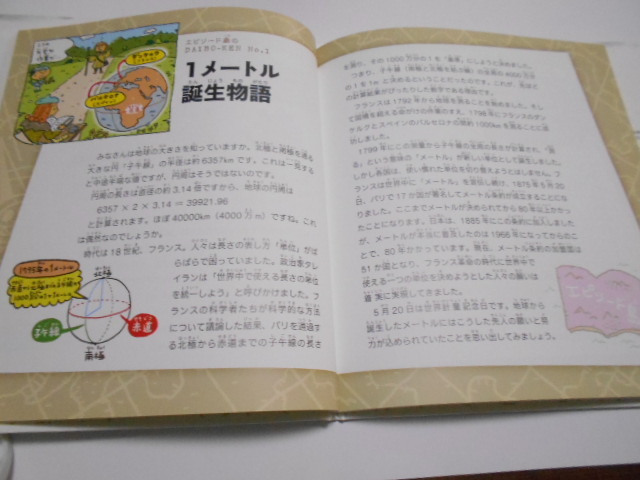 エピソード
DAIBO-KEN No.1
1メートル
誕生物語
みなさんは地球の大きさを知っていますか。北極と南極を通る
大きな円「子午線」の半径は約6357kmです。これは一見する
と中途半端な値ですが、円周はそうではないのです。
円周の長さは直径の約3.14倍ですから、地球の円周は
6357×2×3.14＝39921.96
と計算されます。ほぼ40000km（4000万m）ですね。これ
は偶然なのでしょうか。
時代は18世紀、フランス。人々は長さの表し方「単位」がば
らばらで困っていました。政治家タレ
イランは「世界中で使える長さの単位
を統一しよう」と呼びかけました。フ
ランスの科学者たちが科学的な方法
について議論した結果、パリを通過す
る北極から赤道までの子午線の長さ
1795年の1メートル
北極
子午線
赤道
南極
を測り、その1000万分の1を「基準」にしようと決めました。
つまり、子午線（南極と北極を結ぶ線）の全周の4000万分
の1を1mと決めるということだったのです。これが、先ほど
の計算結果がぴったりした数字である理由です。
フランスは1792年から地球を測ることを始めました。そし
て困難を超える命がけの作業のすえ、1798年にフランスのダン
ケルクとスペインのバルセロナの間約1000kmを測ることに成
功しました。
1799年にこの測量から子午線の全周の長さが計算され、「測
る」という意味の「メートル」が新しい単位として誕生しました。
しかし各国は、使い慣れた単位を切り替えようとはしません。フ
ランスは世界中に「メートル」を宣伝し続け、1875年5月20
日、パリで17か国が署名してメートル条約が成立することにな
りました。ここまでメートルが決められてから80年以上かかっ
たことになります。日本は、1885年にこの条約に加入しました
が、メートルが本当に普及したのは1966年になってからのこ
とで、80年かかっています。現在、メートル条約の加盟国は
51か国となり、フランス革命の時代に世界中で
使える一つの単位を決めようとした人々の願いは
着実に実現してきました。
5月20日は世界計量記念日です。地球から
誕生したメートルにはこうした先人の願いと努
力が込められていたことを思い出してみましょう。